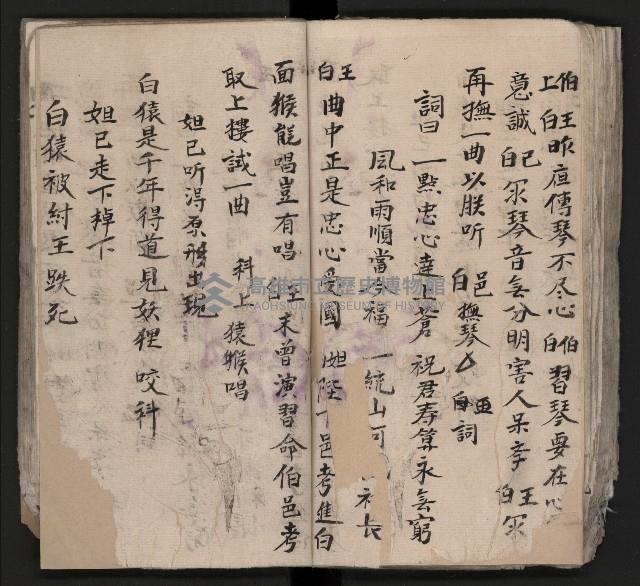 伯上 王白 昨夜傳琴不尽心 伯白 習琴要在心
意誠 己白 罙琴音無分明害人呆幸 王白 罙
再撫一曲以朕听 邑白 撫琴
詞曰 一點忠心達上蒼 祝君寿算永無窮
風和雨順當今福 一統山河 祚長
王白 曲中正是忠心受國 妲 陛下邑考進白
面猴能唱豈有唱 王白 未曾演習命伯邑考
取上搂試一曲 科上 猿猴唱
妲已听淂原形出現
白猿是千年得道見妖狸 咬科
妲已走下掉下
白猿被紂王跌死
高雄市立歷史博物館
KAOHSIUNG MUSEUM OF HISTORY